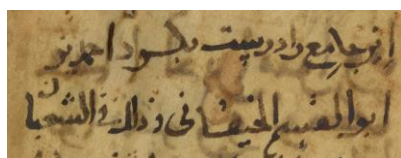 ابن جامع وادريت بلسواد احمد بن
ابو القسم الحنيفا فى وذلك فى الشعبا